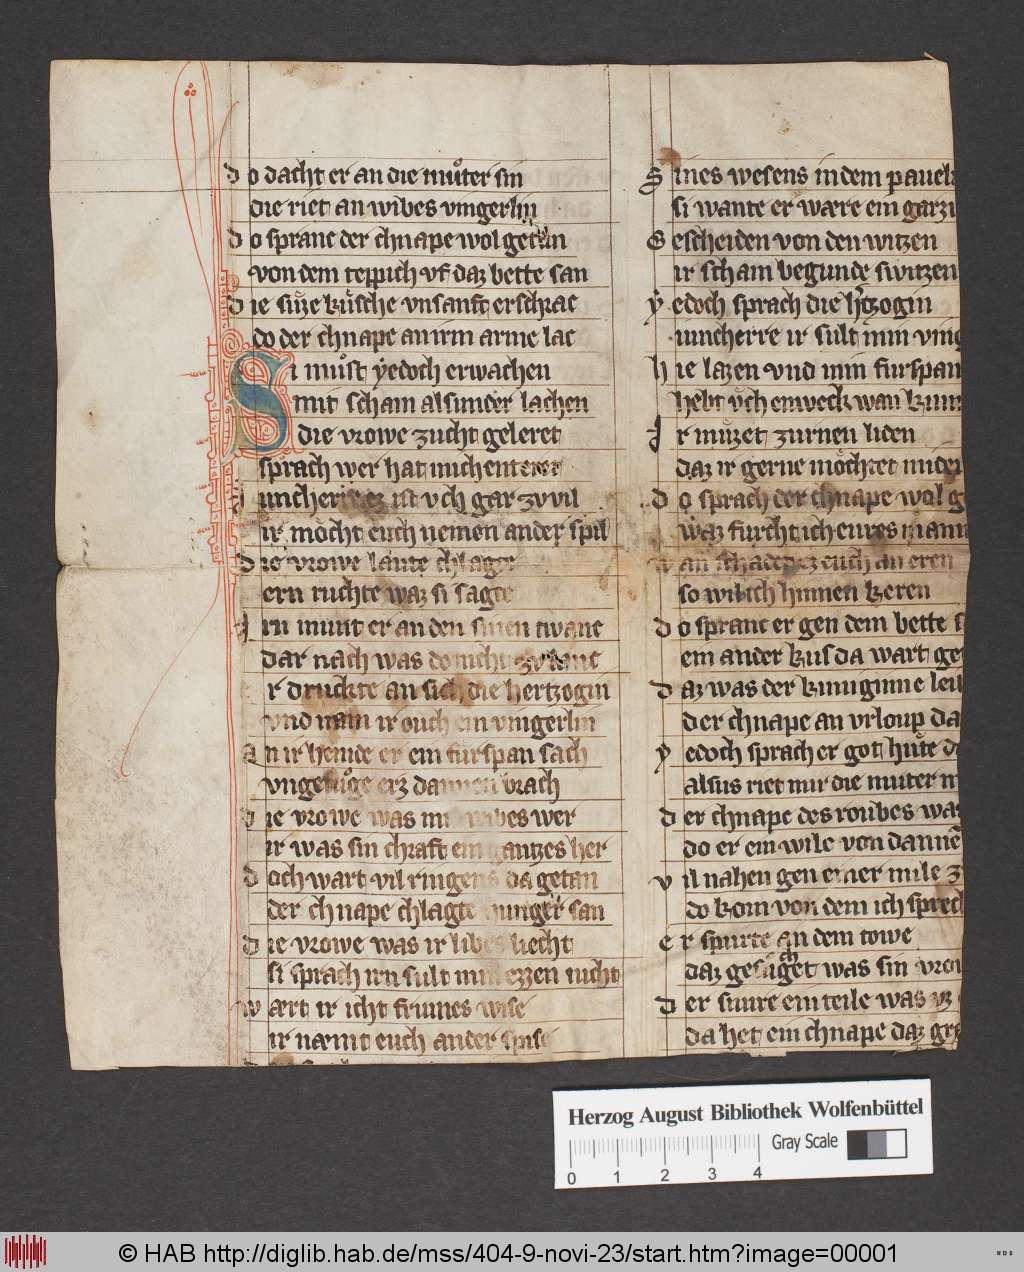 Do dacht er an die muͦter sin
die riet an wibes vingerlin
Do spranc der chnape wol getan
von dem teppich vf daz bette san
Die suͤze kuͤsche vnsanft erschrac
do der chnape an irm arme lac
Si muͦst ẏedoch erwachen
mit scham al sunder lachen
die vrowe zucht geleret
sprach wer hat mich enteret
Juncherre ez ist vch gar zv vil
ir moͤcht euch nemen ander spil
Die vrowe laute chlagte
ern ruchte waz si sagte
Irn munt er an den sinen twanc
dar nach was do nicht zv lanc
r druckte an sich die hertzogin
vnd nam ir ouch ein vingerlin
An ir hemde er ein furspan sach
vngefuͦge erz dannen brach
Die vrowe was mit wibes wer
ir was sin chraft ein gantzes her
Doch wart vil ringens da getan
der chnape chlagte hunger san
Die vrowe was ir libes liecht
si sprach irn sult min ezzen nicht
Wært ir icht frumes wise
ir næmt euch ander spise
Sines wesens in dem pauel
si wante er wære ein garzi
Gescheiden von den witzen
ir scham begunde switzen
Ẏedoch sprach die hertzogin
iuncherre ir sult min ving
Hie lazen vnd min furspan
hebt vͤch enweck wan kum
Ir muͤzet zurnen liden
daz ir gerne moͤchtet mide
Do sprach der chnape wol g
waz furcht ich eures mann
Wan schadet ez euch an eren
so wil ich hinnen keren
Do spranc er gen dem bette s
ein ander kus da wart ge
Daz was der kuniginne lei
der chnape an vrloup da
Ẏedoch sprach er got huͤte d
alsus riet mir die muter m
Der chnape des roubes wa
do er ein wile von dannē
Vil nahen gen einer mile z
do kom von dem ich sprec
Er spurte an dem towe
daz gesuͤchet was sin vro
Der snure ein teile was vz
da het ein chnape daz gr
Herzog August Bibliothek Wolfenbüttel
0 1 2 3 4
Gray Scale
© HAB http://diglib.hab.de/mss/404-9-novi-23/start.htm?image=00001